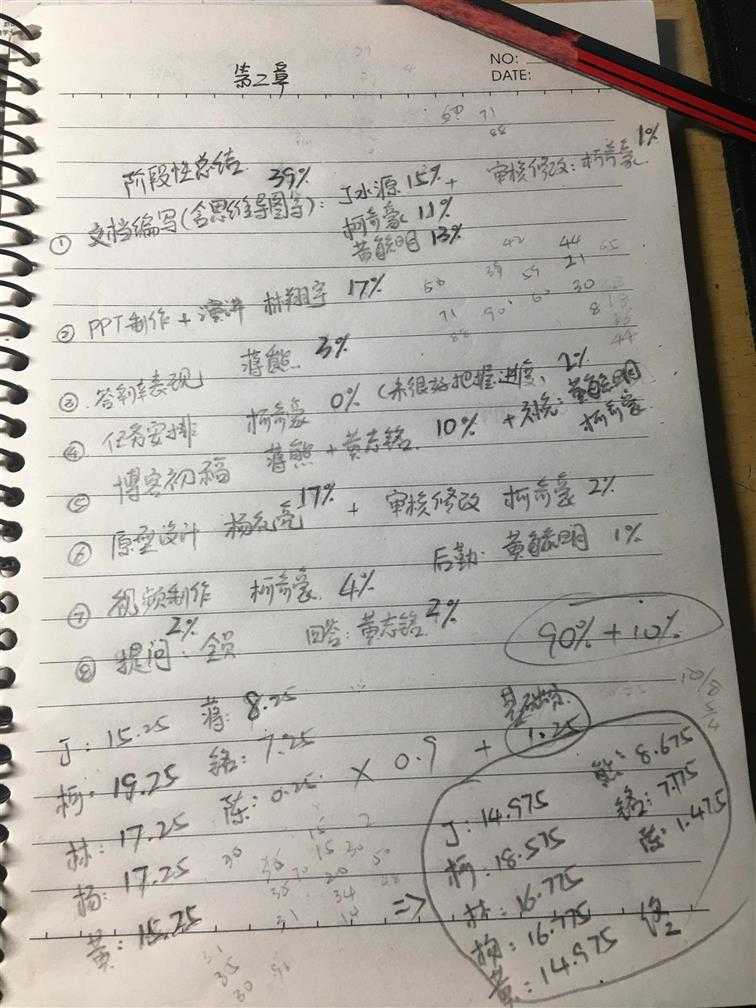 NO:
DATE:
第二章
阶段性总结
39%
① 文档编写(含思维导图等): J水源 15% + 审核修改: 柯奇豪 1%
柯奇豪 11%
黄毓明 13%
② PPT制作 + 演讲 林翔宇 17%
③ 答辩表现 蒋熊 3%
④ 任务安排 柯奇豪 0% (未很好把握进度)
⑤ 博客初稿 蒋熊 + 黄志铭 10% + 黄毓明 2%
柯奇豪
⑥ 原型设计 17% + 审核修改 柯奇豪 2%
⑦ 视频制作 柯奇豪 4% 后勤: 黄毓明 1%
2%
⑧ 提问: 全员 回答: 黄志铭 2%
90% + 10%
J: 15.25 蒋: 8.25
柯: 19.25 铭: 7.25
林: 17.25 陈: 0.25 × 0.9 + 1.25
杨: 17.25
黄: 15.25
=>
J: 14.975 熊: 8.675
柯: 18.575 铭: 7.775
林: 16.775 陈: 1.475
杨: 16.775
黄: 14.975